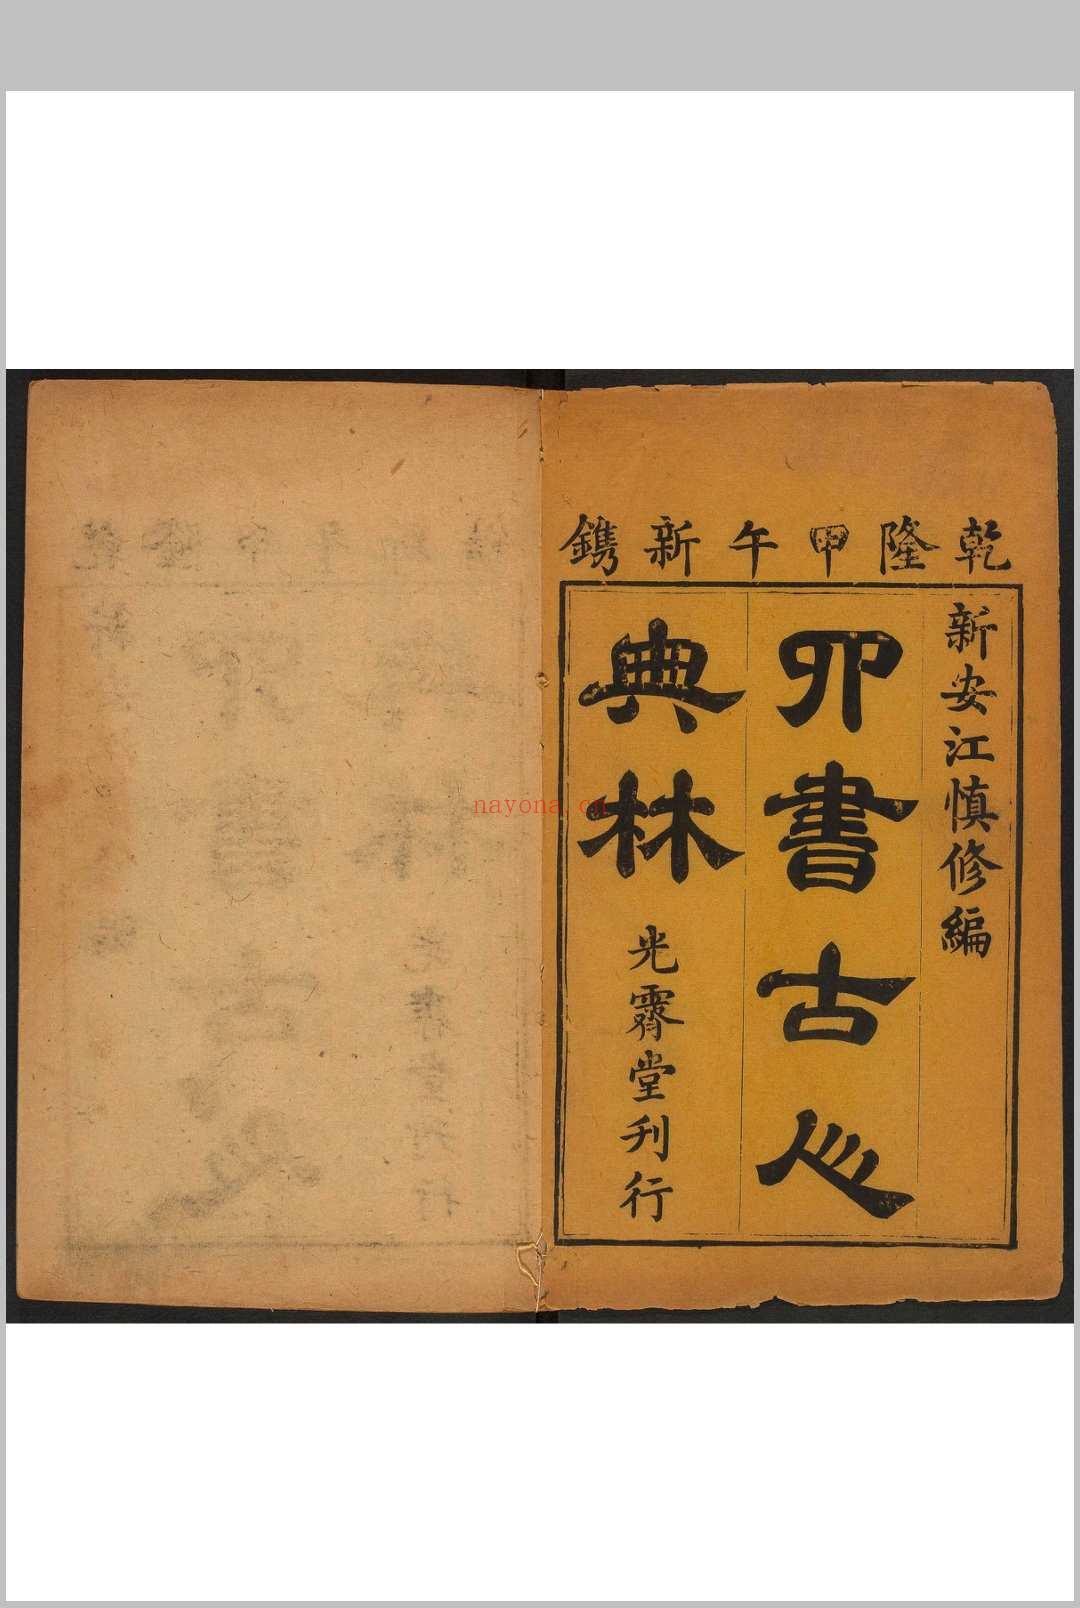 乾隆甲午新鐫
新安江慎修編
四書古人
典林
光霽堂刋行
nayona.cn